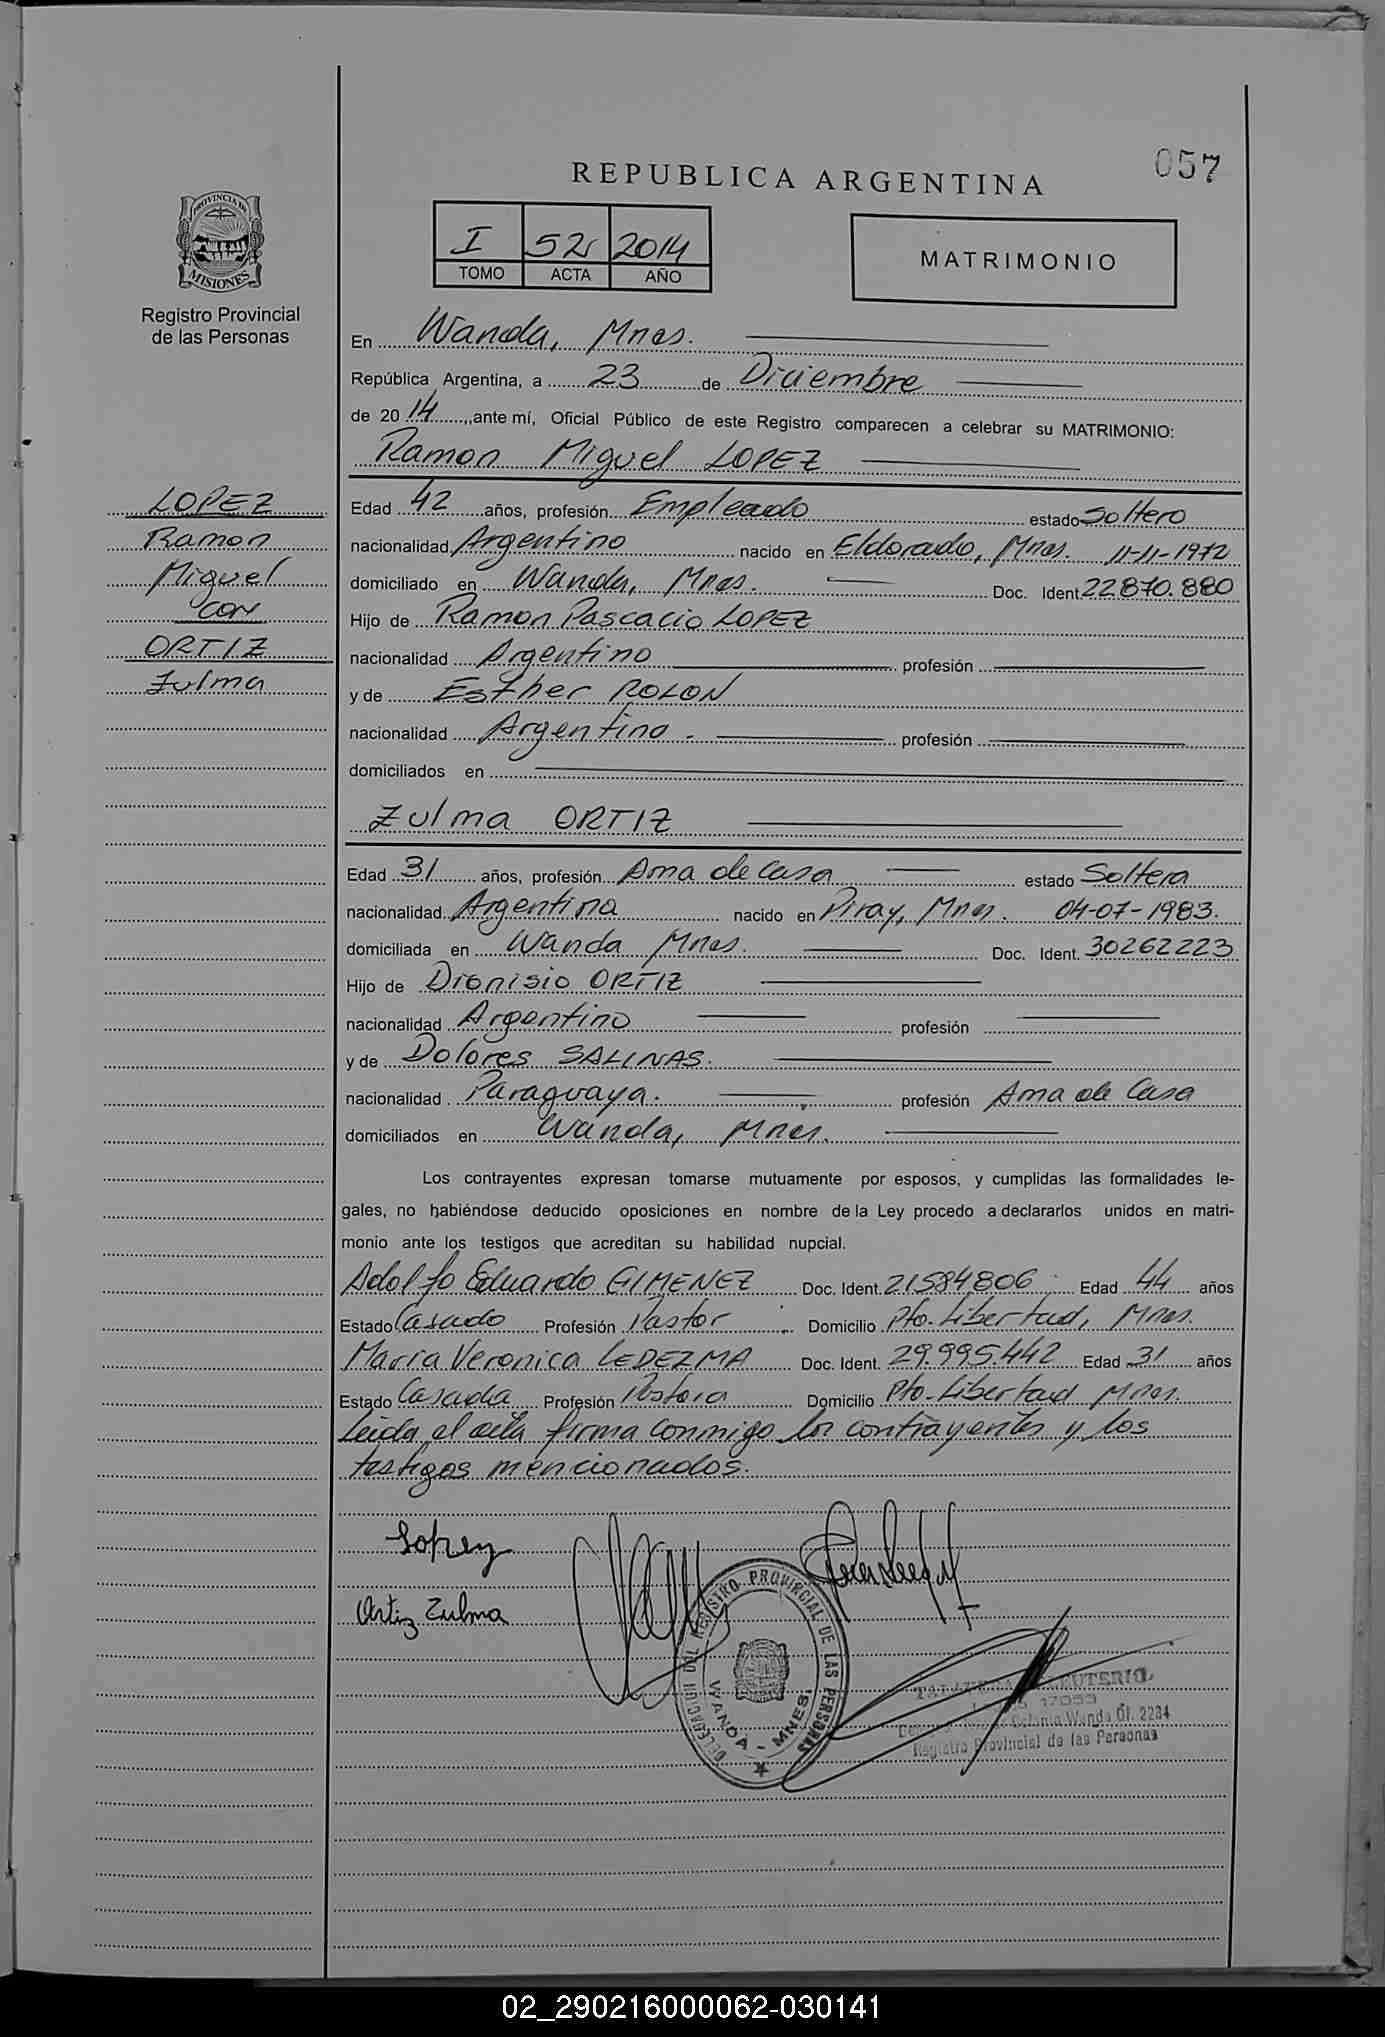 057
REPUBLICA ARGENTINA
PROVINCIA DE
MISIONES
Registro Provincial
de las Personas
I 52 2014
TOMO ACTA AÑO
MATRIMONIO
En Wanda, Mnes.
República Argentina, a 23 de Diciembre
de 2014, ante mí, Oficial Público de este Registro comparecen a celebrar su MATRIMONIO:
Ramon Miguel LOPEZ
LOPEZ
Ramon
Miguel
CON
ORTIZ
Zulma
Edad 42 años, profesión Empleado estado Soltero
nacionalidad Argentino nacido en Eldorado, Mnes. 11-11-1972
domiciliado en Wanda, Mnes. Doc. Ident 22870.880
Hijo de Ramon Pascacio LOPEZ
nacionalidad Argentino profesión
y de Esther ROLON
nacionalidad Argentina. profesión
domiciliados en
Zulma ORTIZ
Edad 31 años, profesión Ama de Casa estado Soltera
nacionalidad Argentina nacido en Piray, Mnes. 04-07-1983.
domiciliada en Wanda Mnes. Doc. Ident. 30262223
Hijo de Dionisio ORTIZ
nacionalidad Argentino profesión
y de Dolores SALINAS.
nacionalidad Paraguaya. profesión Ama de Casa
domiciliados en Wanda, Mnes.
Los contrayentes expresan tomarse mutuamente por esposos, y cumplidas las formalidades le-
gales, no habiéndose deducido oposiciones en nombre de la Ley procedo a declararlos unidos en matri-
monio ante los testigos que acreditan su habilidad nupcial.
Adolfo Eduardo GIMENEZ Doc. Ident. 21584806 Edad 44 años
Estado Casado Profesión Pastor Domicilio Pto. Libertad, Mnes.
Maria Veronica LEDEZMA Doc. Ident. 29.995.442 Edad 31 años
Estado Casada Profesión Pastora Domicilio Pto. Libertad Mnes.
Leida el acta firma conmigo los contrayentes y los
testigos mencionados.
Lopez
Ortiz Zulma
DELEGACION DEL REGISTRO PROVINCIAL DE LAS PERSONAS
WANDA - MNES.
ELEUTERIO
17053
Colonia Wanda Of. 2284
Registro Provincial de las Personas
02_290216000062-030141